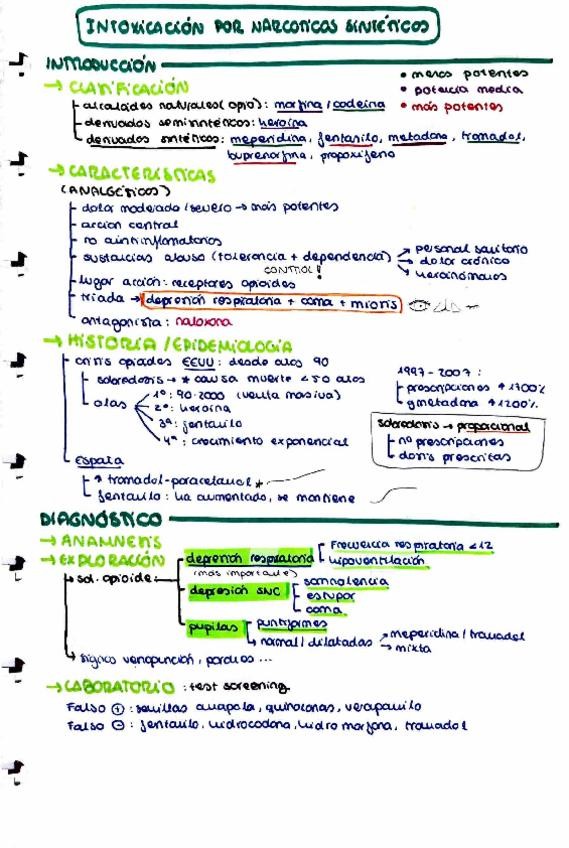 INTOXICACIÓN POR NARCOTICOS SINTÉTICOS
INTRODUCCIÓN
→ CLASIFICACIÓN
• menos potentes
• potencia media
• más potentes
alcaloides naturales (opio): morfina / codeina
derivados semisintéticos: heroína
derivados sintéticos: meperidina, fentanilo, metadona, tramadol,
buprenorfina, propoxifeno
→ CARACTERISTICAS
(ANALGÉSICOS)
dolor moderado / severo → más potentes
acción central
no aintiinflamatorios
sustancias abuso (tolerancia + dependencia)
CONTROL!
personal sanitario
dolor crónico
heroinómanos
lugar acción: receptores opioides
triada → depresión respiratoria + coma + miosis
antagonista: naloxona
→ HISTORIA / EPIDEMIOLOGIA
crisis opiodes EEUU: desde años 90
sobredosis → * causa muerte < 50 años
olas
1º: 90-2000 (venta masiva)
2ª: heroína
3ª: fentanilo
4ª: crecimiento exponencial
1997-2007:
prescripciones ↑ 1700%
g metadona ↑ 1200%
sobredosis → proporcional
nº prescripciones
dosis prescritas
España
↑ tramadol-paracetamol *
fentanilo: ha aumentado, se mantiene
DIAGNÓSTICO
→ ANAMNESIS
→ EXPLORACIÓN
sd. opioide
depresión respiratoria
(más importante)
Frecuencia respiratoria < 12
hipoventilación
depresión SNC
somnolencia
estupor
coma
pupilas
puntiformes
normal / dilatadas
meperidina / tramadol
mixta
signos venopunción, parches ...
→ LABORATORIO: test screening
Falso ⊕: semillas amapola, quinolonas, verapamilo
Falso ⊖: fentanilo, hidrocodona, hidromorfona, tramadol